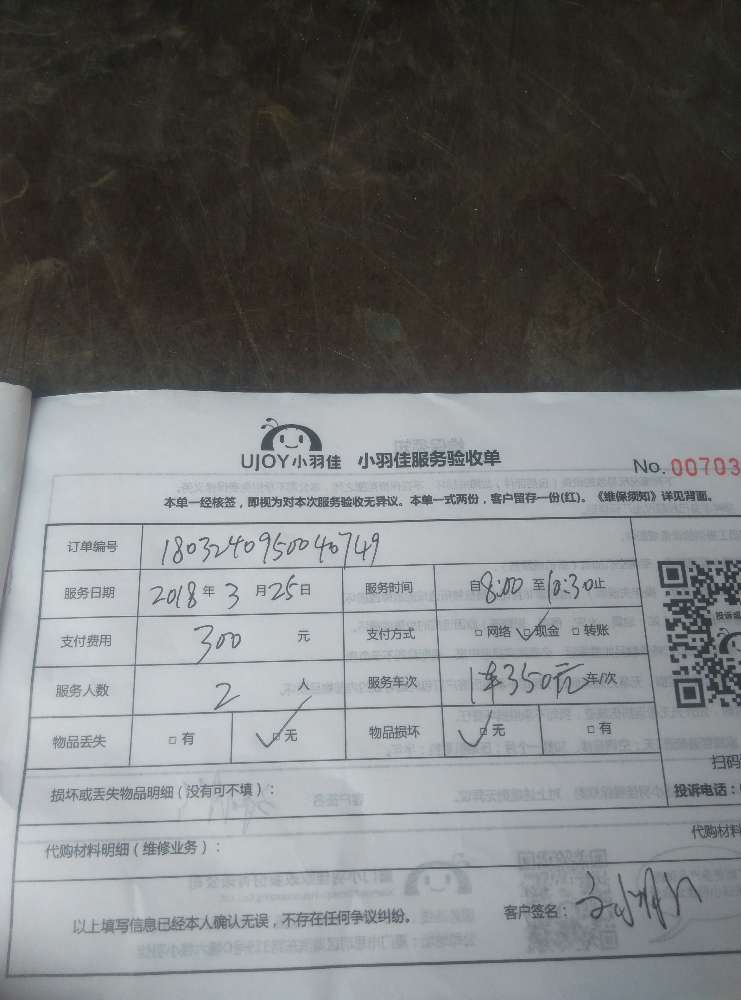 UJOY小羽佳 小羽佳服务验收单
No. 00703
本单一经核签，即视为对本次服务验收无异议。本单一式两份，客户留存一份(红)。《维保须知》详见背面。
订单编号 1803240950040749
服务日期 2018年3月25日 服务时间 自8:00至10:30止
支付费用 300 元 支付方式 □网络 □现金 □转账
服务人数 2 人 服务车次 1车350元 车/次
物品丢失 □有 □无 物品损坏 □无 □有
损坏或丢失物品明细（没有可不填）：
扫码
投诉电话：
代购材料明细（维修业务）：
代购材料
以上填写信息已经本人确认无误，不存在任何争议纠纷。 客户签名：